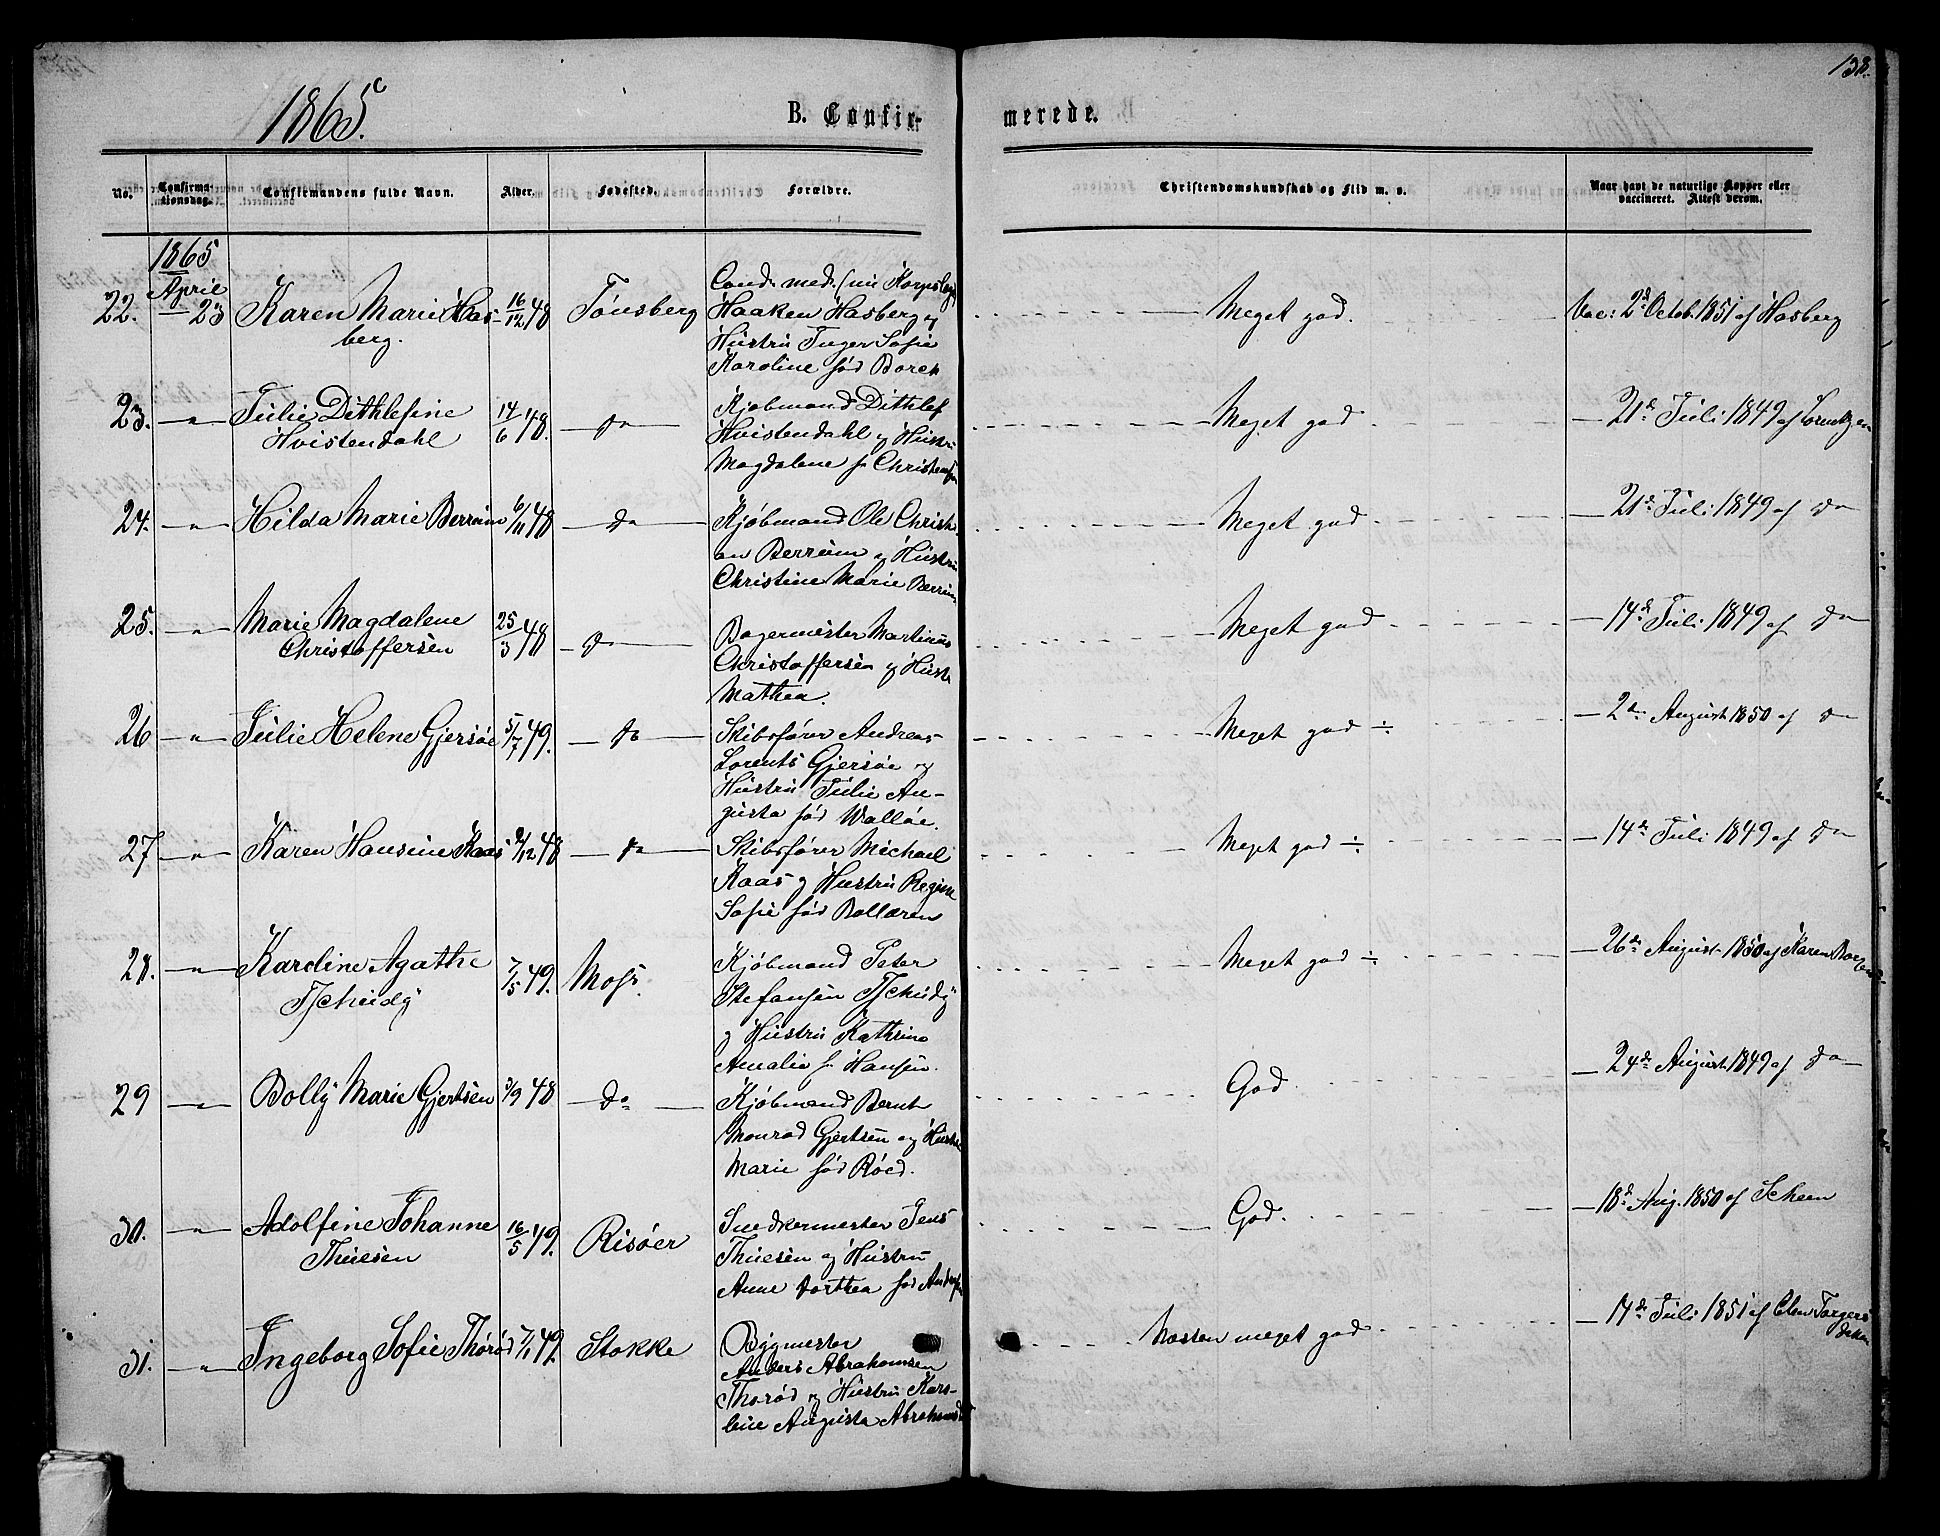 138.
1865.
B. Confir-
merede.
No.
Confirma-
tionsdag.
Confirmandens fulde Navn.
Alder.
Fødested.
Forældre.
Christendomskundskab og Flid m. v.
Naar havt de naturlige Kopper eller
vaccineret. Attest derom.
1865
April
22. 23 Karen Marie Has-
berg.
16/12 48 Tønsberg
Cand. med. (nu
Haaken Hasberg og
Hustru Inger Sofie
Karoline fød Borch
Meget god.
Vac: 2d Octob. 1851 af Hasberg
23. — " — Julie Dithlefine
Hvistendahl
14/6 48. — do —
Kjøbmand Dithlef
Hvistendahl og Hustru
Magdalene f. Christensen
Meget god
— 21de Juli 1849 af Lorentzen
24. — " — Hilda Marie Berrum
6/11 48 — do —
Kjøbmand Ole Christi-
an Berrum og Hustru
Christine Marie Berrum
Meget god
— 21de Juli 1849 af do —
25. — " — Marie Magdalene
Christoffersen
25/3 48 — do —
Bagermester Martinus
Christoffersen og Hustru
Mathea.
Meget god
— 14de Juli 1849 af do —
26 — " — Julie Helene Gjersøe
5/7 49. — do —
Skibsfører Andreas
Lorents Gjersøe og
Hustru Julie Au-
gusta fød Walløe.
Meget god ÷
— 2den August 1850 af do —
27 — " — Karen Hansine Kaas
9/12 48 — do —
Skibsfører Michael
Kaas og Hustru Regine
Sofie fød Bollæren
Meget god ÷
— 14de Juli 1849 af do —
28. — " — Karoline Agathe
Tschudÿ
7/5 49. Moss.
Kjøbmand Peter
Stefansen Tschudÿ
og Hustru Kathrine
Amalie f. Hansen.
Meget god ÷
— 26de August 1850 af Karen
29 — " — Bollÿ Marie Gjertsen
3/9 48 — do —
Kjøbmand Bernt
Monrad Gjertsen og Hustru
Marie fød Røed.
God
— 24de August 1849 af do —
30. — " — Adolfine Johanne
Thuesen
16/5 49. Risøer
Snedkermester Jens
Thuesen og Hustru
Anne Dorthea fød
God.
— 18de Aug. 1850 af Scheen
31. — " — Ingeborg Sofie Thorød
7/1 49. Stokke
Bygmester
Anders Abrahamsen
Thorød og Hustru Kars-
tine Augusta
Næsten meget god
— 14de Juli 1851 af Elen Torgers